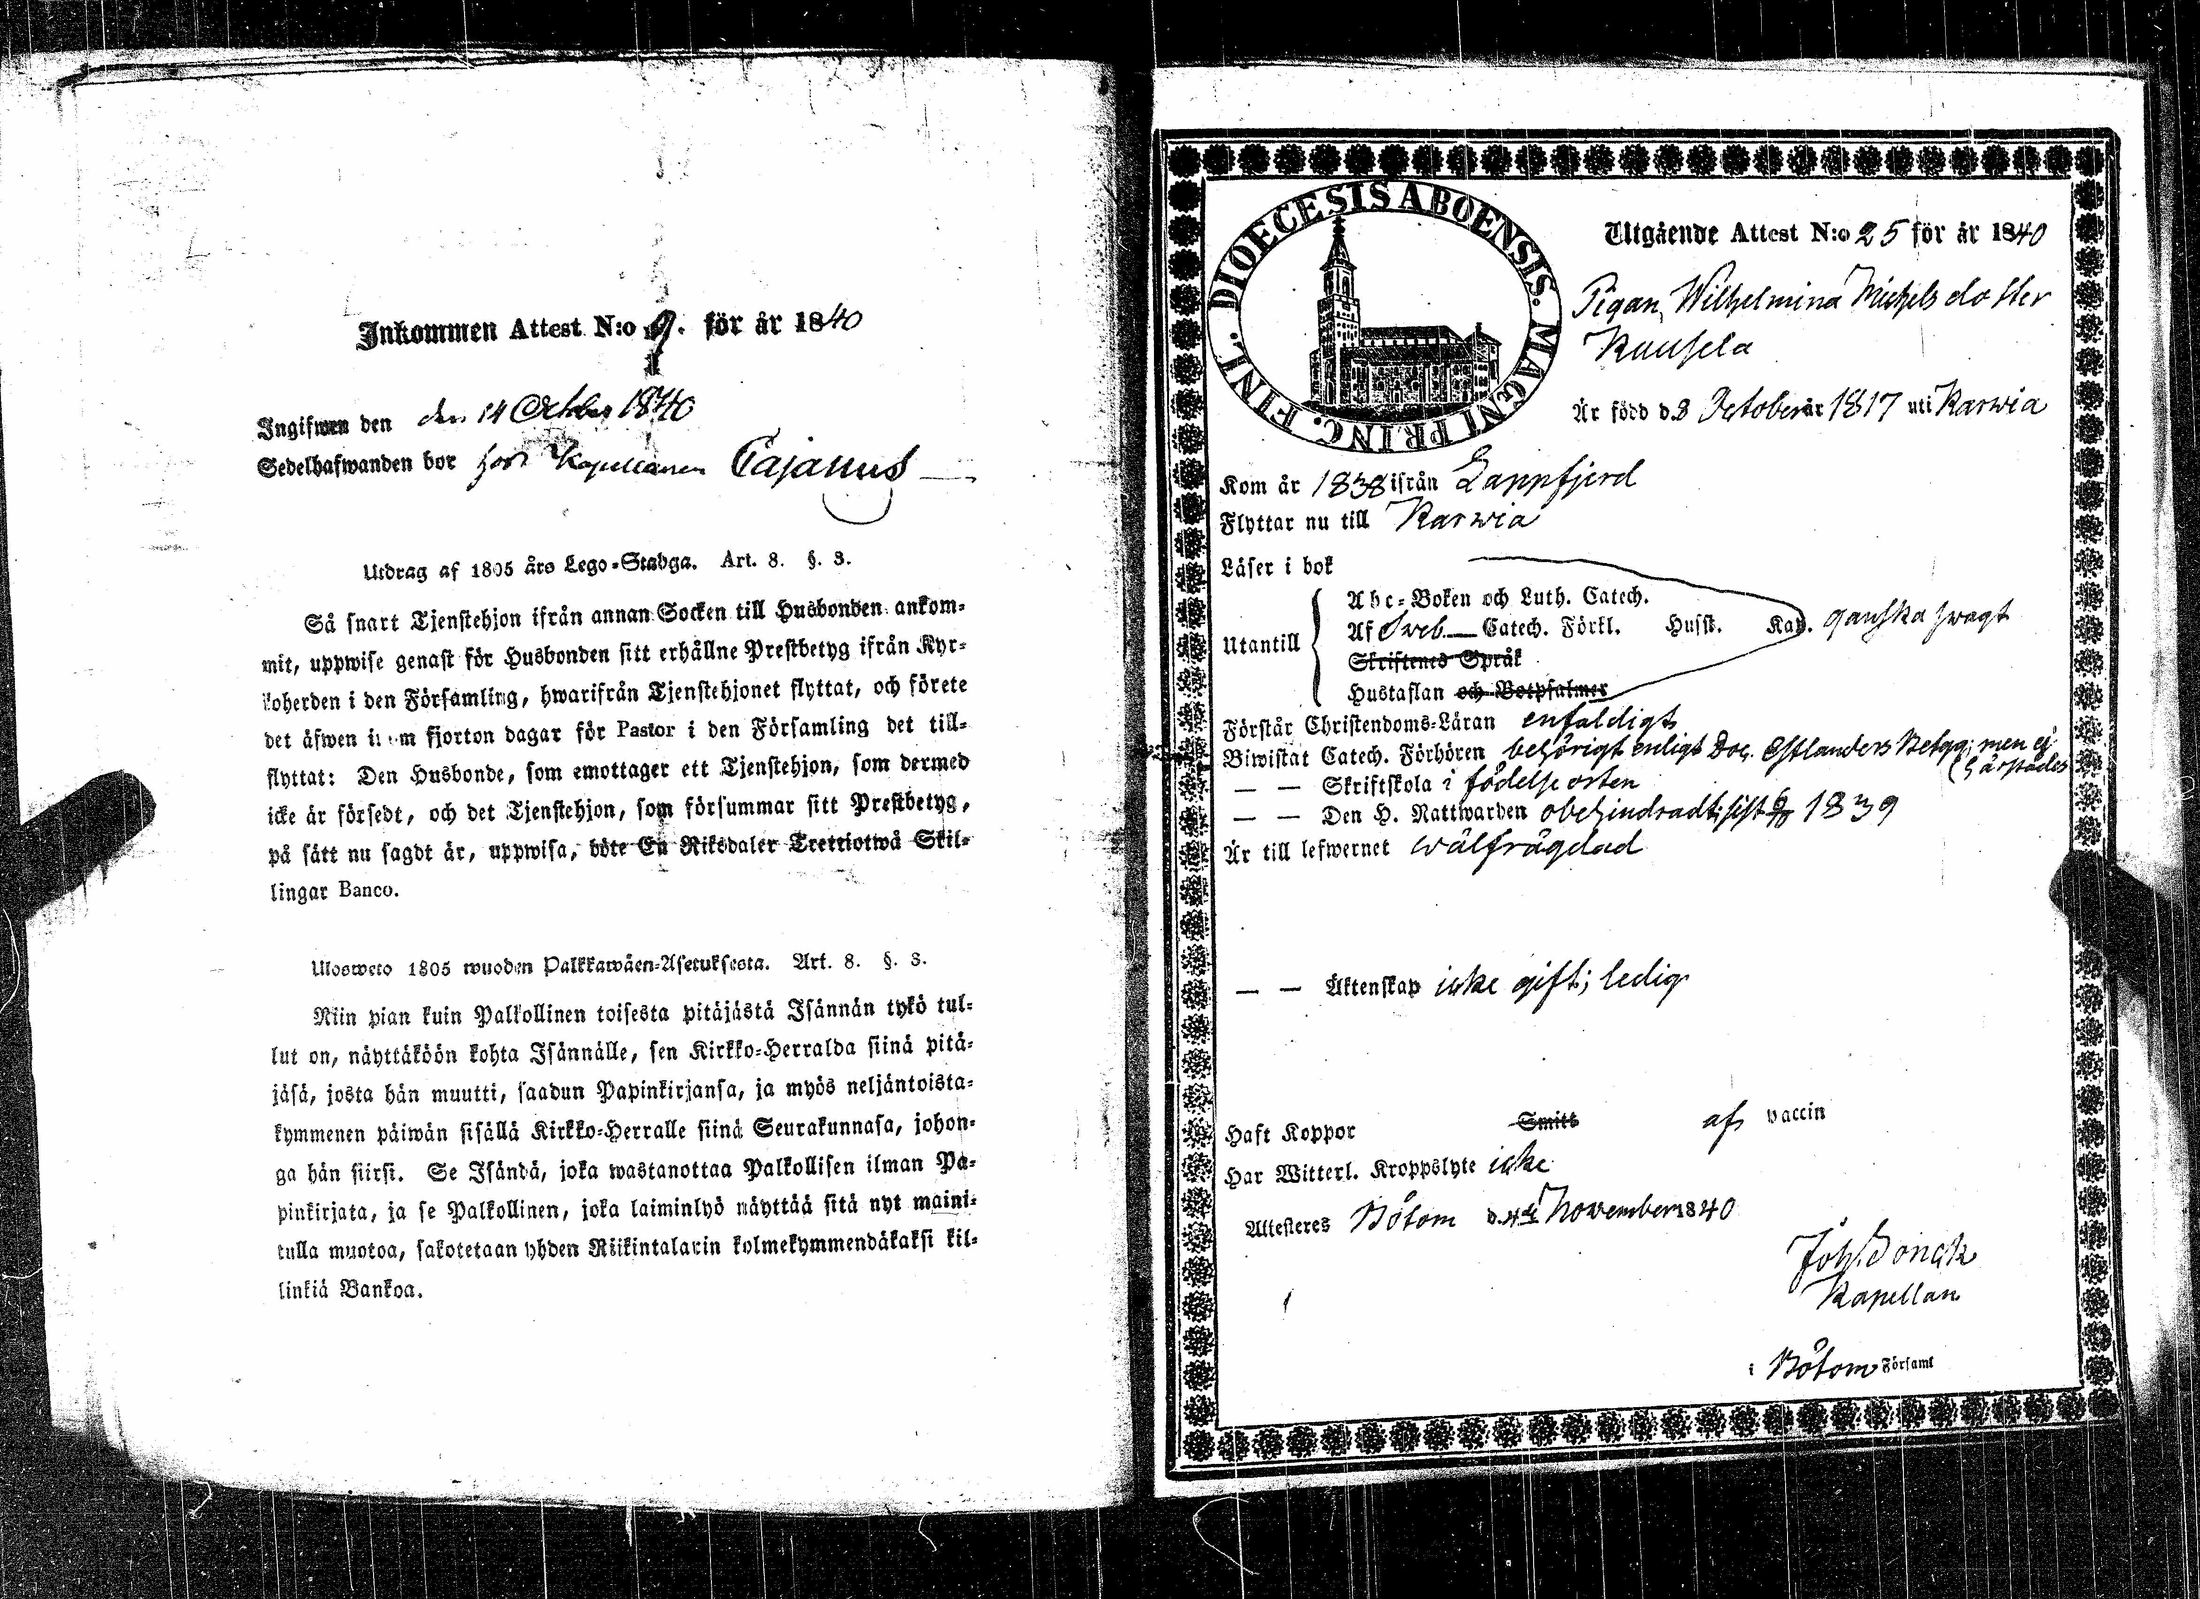 Inkommen Attest N:o 9. för år 1840
Ingifwen den den 14 October 1840
Sedelhafwanden bor hos Kapellanen Cajanus
Utdrag af 1805 års Lego-Stadga. Art. 8. §. 3.
Så snart Tjenstehjon ifrån annan Socken till Husbonden ankom-
mit, uppwise genast för Husbonden sitt erhållne Prestbetyg ifrån Kyr-
koherden i den Församling, hwarifrån Tjenstehjonet flyttat, och förete
det äfwen inom fjorton dagar för Pastor i den Församling det till-
flyttat: Den Husbonde, som emottager ett Tjenstehjon, som dermed
icke är försedt, och det Tjenstehjon, som försummar sitt Prestbetyg,
på sätt nu sagdt är, uppwisa, böte En Riksdaler Trettiotwå Skil-
lingar Banco.
Ulosweto 1805 wuoden Palkkawäen-Asetuksesta. Art. 8. §. 3.
Niin pian kuin Palkollinen toisesta pitäjästä Isännän tykö tul-
lut on, näyttäköön kohta Isännälle, sen Kirkko-Herralda siinä pitä-
jäsä, josta hän muutti, saadun Papinkirjansa, ja myös neljäntoista-
kymmenen päiwän sisällä Kirkko-Herralle siinä Seurakunnasa, johon-
ga hän siirsi. Se Isändä, joka wastanottaa Palkollisen ilman Pa-
pinkirjata, ja se Palkollinen, joka laiminlyö näyttää sitä nyt maini-
tulla muotoa, sakotetaan yhden Riikintalarin kolmekymmendäkaksi kil-
linkiä Bankoa.
DIOECESIS ABOENSIS. MAGNI PRINC. FINL.
Utgående Attest N:o 25 för år 1840
Pigan, Wilhelmina Michelsdotter
Kuusela
Är född d. 8 October år 1817 uti Karwia
Kom år 1838 ifrån Lappfjerd
Flyttar nu till Karwia
Läser i bok
Utantill
Abc-Boken och Luth. Catech.
Af Sveb. Catech. Förkl. Husst. Kap. ganska swagt
Skriftenes Språk
Hustaflan och Botpsalmer
Förstår Christendoms-Läran enfaldigt
Biwistat Catech. Förhören behörigt enligt Doc. Estlanders Betyg; men ej
härstädes
— — Skriftskola i födelse orten
— — Den H. Nattwarden obehindradt, sist 1839
Är till lefwernet wälfrägdad
— — Äktenskap icke gift; ledig
Haft Koppor Smitt af vaccin
Har Witterl. Kroppslyte icke
Attesteres Bötom d. 4 November 1840
Joh. Donck
Kapellan
i Bötom Församl